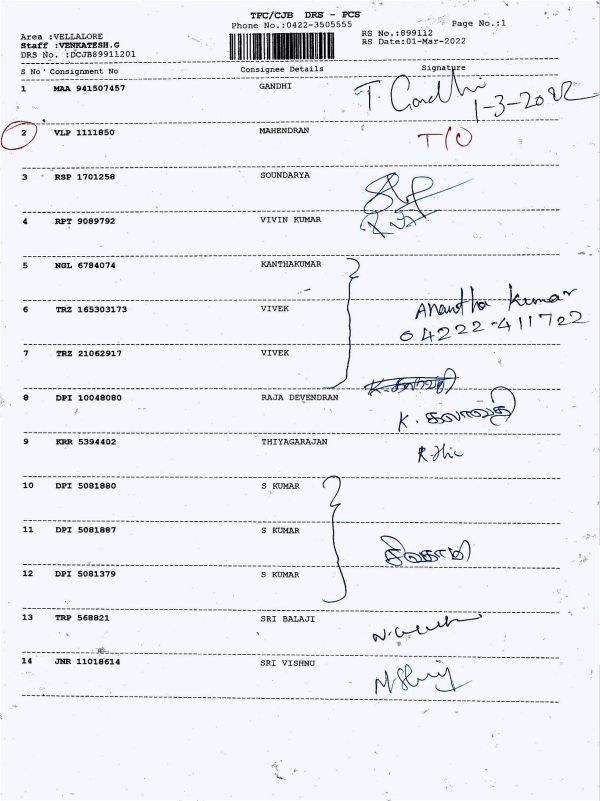 TPC/CJB DRS - PCS
Phone No.:0422-3505555
Page No.:1
Area :VELLALORE
RS No.:899112
Staff :VENKATESH.G
RS Date:01-Mar-2022
DRS No. :DCJB89911201
S No Consignment No Consignee Details Signature
1 MAA 941507457 GANDHI T. Gandhi
1-3-2022
2 VLP 1111850 MAHENDRAN T/O
3 RSP 1701258 SOUNDARYA
4 RPT 9089792 VIVIN KUMAR
5 NGL 6784074 KANTHAKUMAR
6 TRZ 165303173 VIVEK Anantha Kumar
04222-411722
7 TRZ 21062917 VIVEK
8 DPI 10048080 RAJA DEVENDRAN
K. கலாவதி
9 KRR 5394402 THIYAGARAJAN
10 DPI 5081880 S KUMAR
11 DPI 5081887 S KUMAR
12 DPI 5081379 S KUMAR
13 TRP 568821 SRI BALAJI
14 JNR 11018614 SRI VISHNU